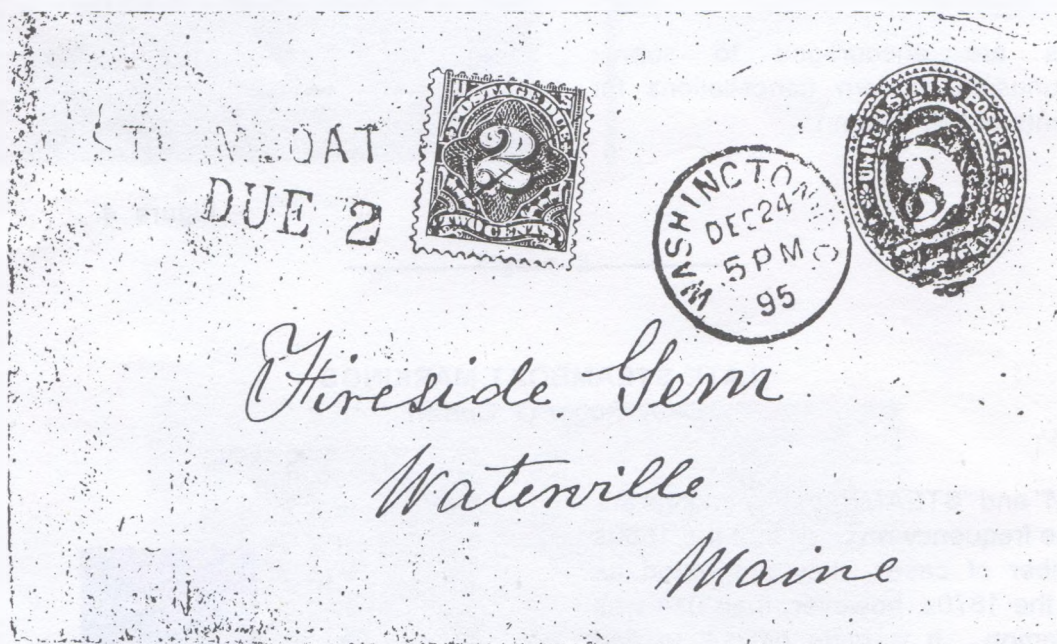 STEAMBOAT
DUE 2
POSTAGE DUE
2
TWO CENTS
WASHINGTON, D.C.
DEC 24
5 PM
95
UNITED STATES POSTAGE
Fireside Gem
Waterville
Maine